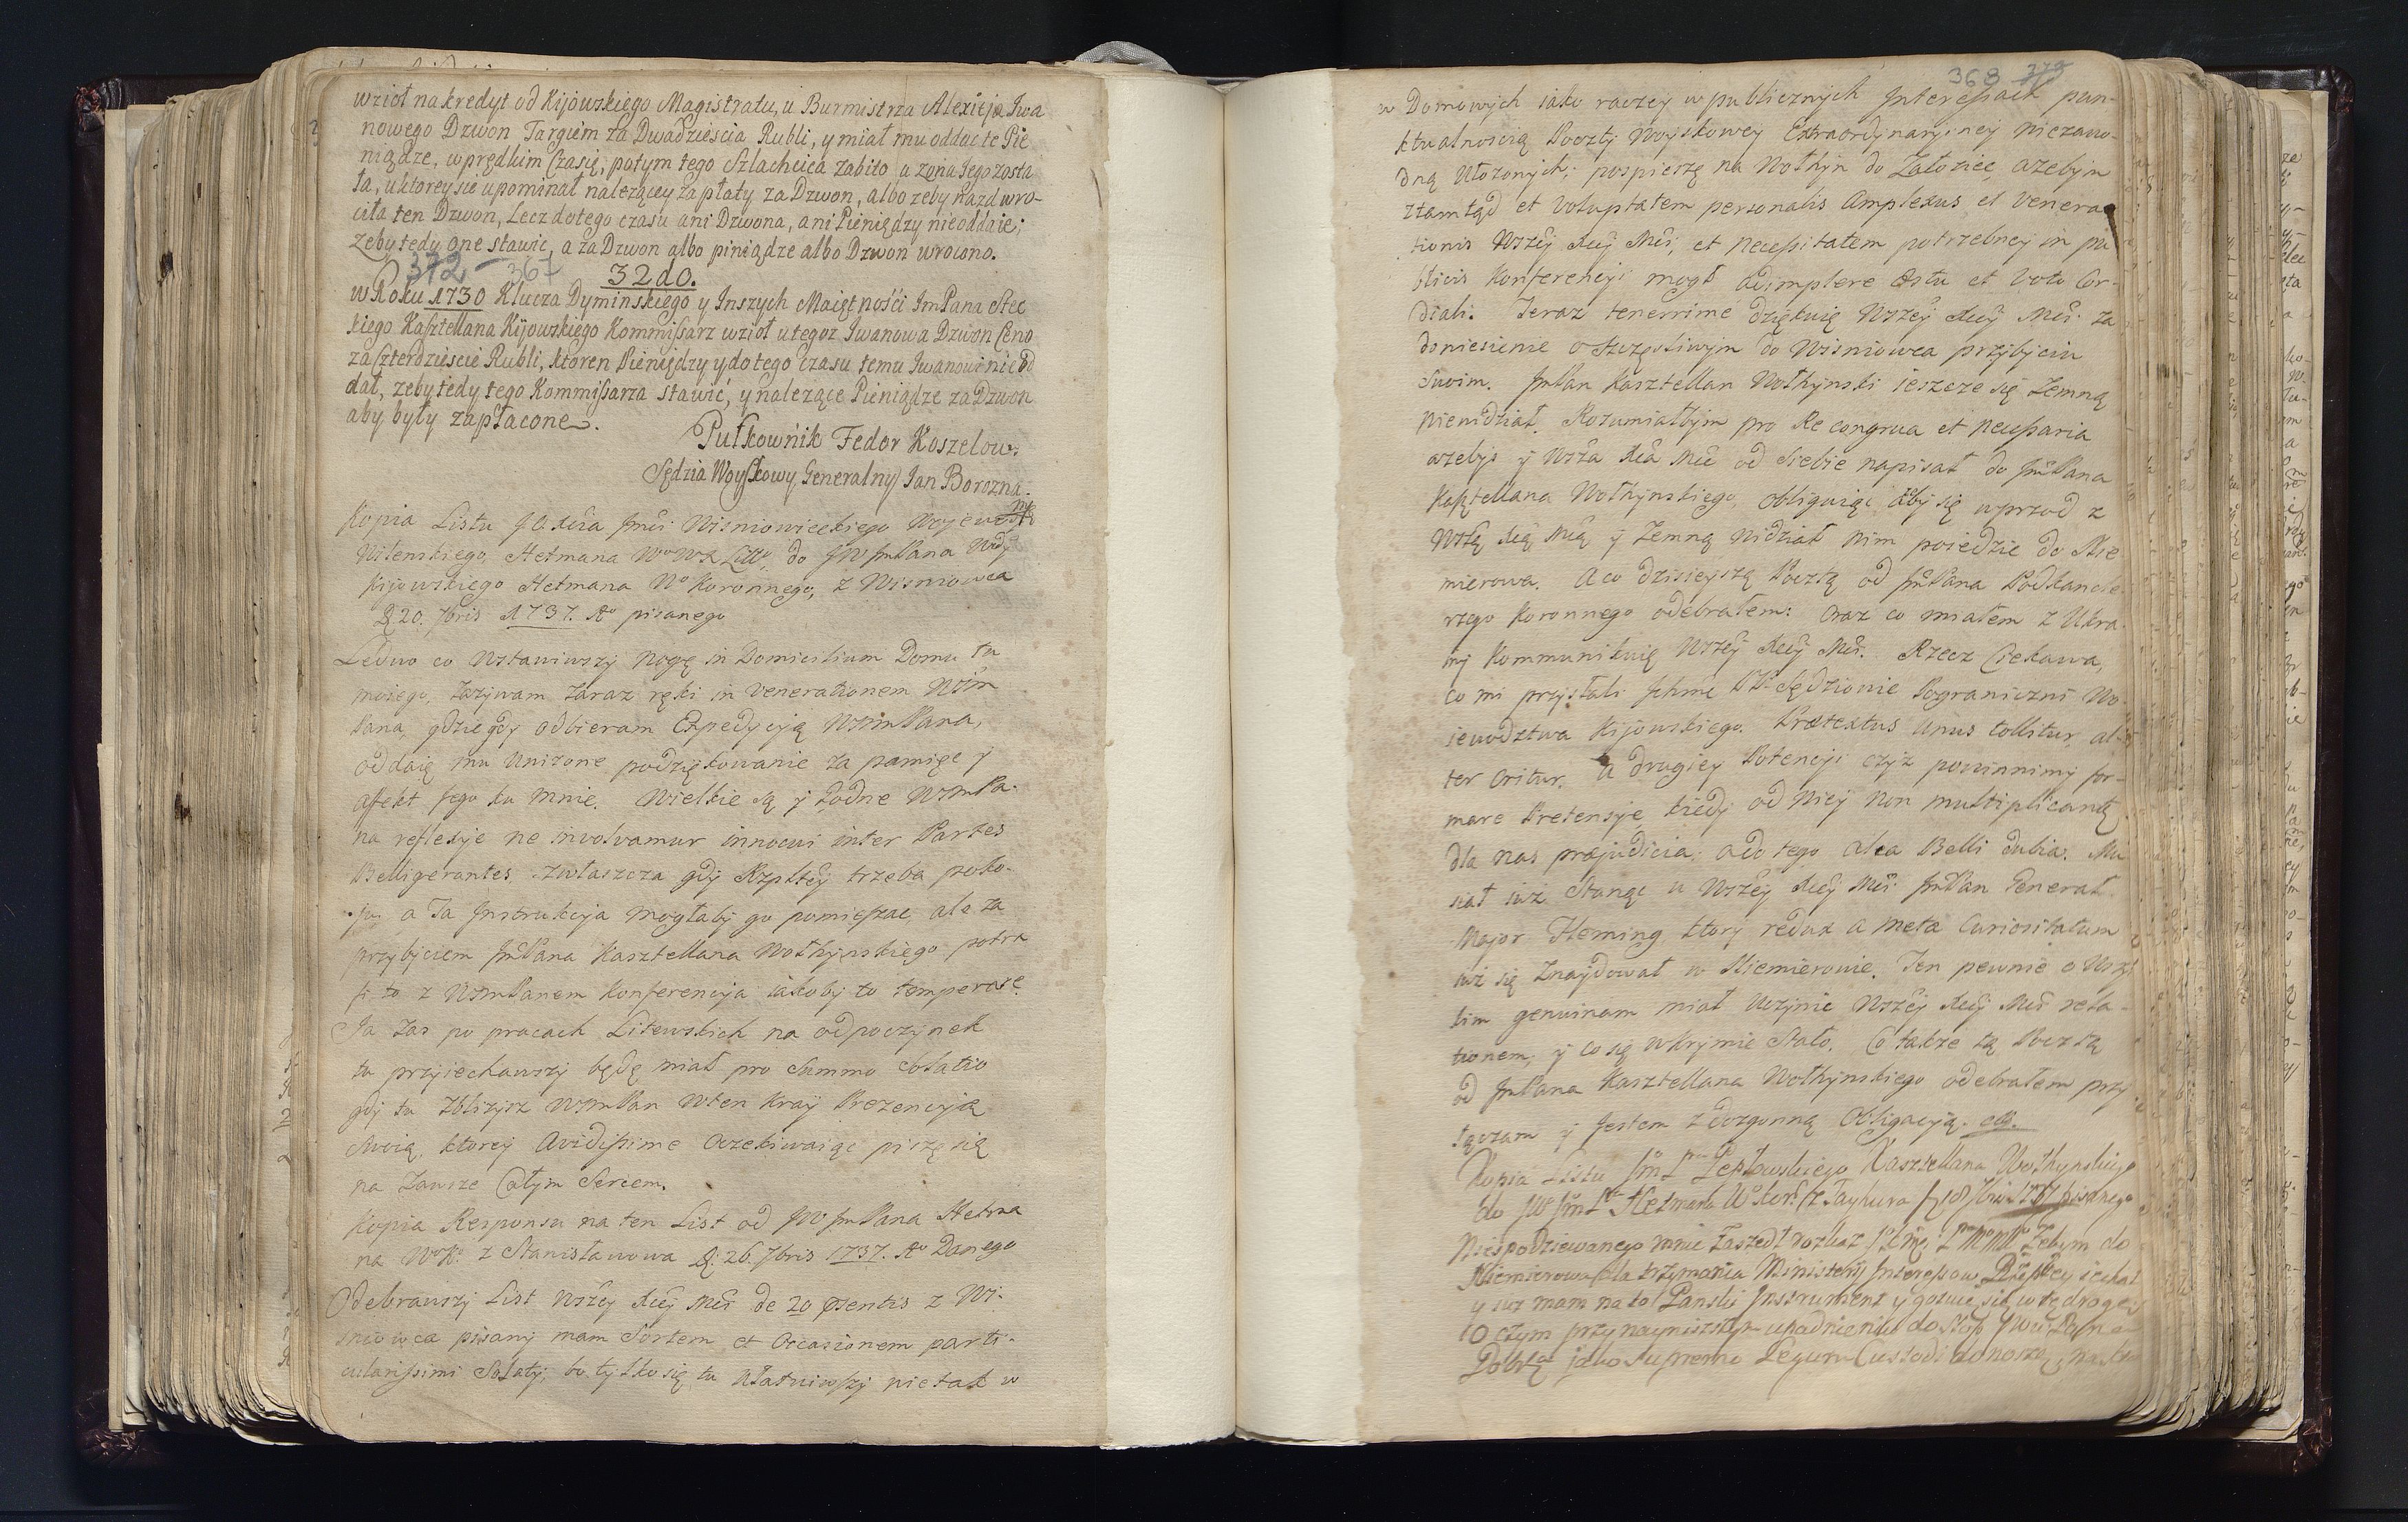 wzioł na kredyt od Kijowskiego Magistratu, u Burmistrza Alexieja Iwa
nowego Dzwon Targiem za Dwadzieścia Rubli, y miał mu oddac te Pie
niądze, w prędkim Czasię, potym tego Szlachcica zabito a zona iego zosta
ła, u ktorey sie upominał nalezącey zapłaty za Dzwon, albo zeby nazad wro-
ciła ten Dzwon, Lecz do tego czasu ani Dzwona, ani Pieniędzy nieoddaie;
Zeby tedy one stawic, a za Dzwon albo piniądze albo Dzwon wrocono.
372 367
32do.
w Roku 1730 Klucza Dyminskiego y Inszych Maiętnośći ImPana Stec
kiego Kasztellana Kijowskiego Kommissarz wzioł u tegoz Iwanowa Dzwon Ceno
za Czterdzieście Rubli, ktoren Pieniędzy y do tego Czasu temu Iwanowi nieod
dał, zeby tedy tego Kommissarza stawić, y nalezące Pieniądze za Dzwon
aby były zapłacone.
Pułkownik Fedor Koszelow.
Sędzia Woyskowy Generalny Jan Borozna.
Kopia Listu J.O. Xcia Jmci Wisniowieckiego Wojewody
Wilenskiego, Hetmana Wo WXLitto, do JW JmPana Wdy
Kijowskiego Hetmana Wo Koronnego, z Wisniowca
D 20. 7bris 1737. Ao pisanego
Ledwo co Wstawiwszy nogę in Domicilium Domu tu
moiego, Zazywam zaraz ręki in Venerationem Wsm
Pana, gdzie gdy odbieram Expedycyią WsmPana,
oddaię mu Unizone podziękowanie za pamięc y
affekt Jego ku mnie. Wielkie są y godne WsmPa-
na reflexye ne involvamur innocui inter Partes
Belligerantes zwłaszcza gdy Rzpltey trzeba poko-
ju, a Ta Instrukcyia mogłaby go pomieszac ale za
przybyciem JmPana Kasztellana Wołhynskiego potra
fi to z WsmPanem Konferencyia iakoby to temperare.
Ja zas po pracach Litewskich na odpoczynek
tu przyiechawszy będę miał pro Summo Solatio
gdy tu zblizysz WsmPan w ten Kray Prezencyią
Swoią, ktorey Avidissime Oczekiwaiąc piszę się
na Zawsze Całym Sercem.
Kopia Responsu na ten List od JW JmPana Hetma
na WoKo z Stanisławowa D. 26. 7bris 1737. Ao Danego
Odebrawszy List Wszey Xcey Mci de 20 psentis z Wi-
sniowca pisany mam Sortem et Occasionem parti-
cularissimi Solaty; bo tylko się tu Ułatwiwszy nie tak w
368 373
w Domowych iako raczey w publicznych Interessach pun-
ktualnoscią Poczty Woyskowey Extraordynaryiney niezawo-
dną Ułozonych; pospieszę na Wołhyn do Załoziec, azebym
ztamtąd et Voluptatem personalis Amplexus et Venera
tionis Wszey Xcey Mci, et necessitatem potrzebney in pu
blicis Konferencyi mogł adimplere Astu et Voto Cor-
diali. Teraz tenerrime dziękuię Wszey Xcey Mci za
doniesienie o szczęsliwym do Wisniowca przybyciu
Swoim. JmPan Kasztellan Wołhynski ieszcze się Zemną
niewidział. Rozumiałbym pro Re congrua et necessaria
azebys y Wsza Xca Mc od Siebie napisał do JmPana
Kasztellana Wołhynskiego, obliguiąc azby się wprzod z
Wszą Xcą Mcą y Zemną widział nim poiedzie do Nie
mierowa. A co dzisieyszą Pocztą od JmPana Podkancle
rzego Koronnego odebrałem: Oraz co miałem z Ukra
iny Kommunikuię Wszey Xcey Mci. Rzecz Ciekawa,
co mi przysłali Ichmc PP. Sędziowie Pograniczni Wo
iewodztwa Kijowskiego. Prætextus Unus tollitur, al-
ter Oritur. A drugiey Potencyi czyz powinnimy for-
mare Pretensye kiedy od niey non multiplicantę
dla nas præjudicia: a do tego alea Belli dubia. Mu
siał iuz Stanąc u Wszey Xcey Mci JmPan Generał
Major Fleming ktory redux a meta Curiositatum
iuz się Znaydował w Niemierowie. Ten pewnie o Wszys
tkim genuinam miał Uczynic Wszey Xcey Mci rela-
tionem, y co się w Krymie Stało. Co takze tą Pocztą
od JmPana Kasztellana Wołhynskiego odebrałem przy
łączam y Jestem z dozgonną Obligacyią. etc.
Kopia Listu Jm Pna Lędochowskiego Kasztellana Wołhynskiego
do JW Jm Pna Hetmana Wo Kor: z Taykura D 18 7bris 1737 pisanego
Niespodziewanego mnie zaszedł rozkaz Zebym do
Niemierowa dla trzymania Ministerij Interessow Rzeptey iechał
y iuz mam na to Panski Instrument y gotuię się w tę drogę,
O czym przy nayniszszym upadnieniu do stop
Dobrą iako Supremo Legum Custodi donoszę,